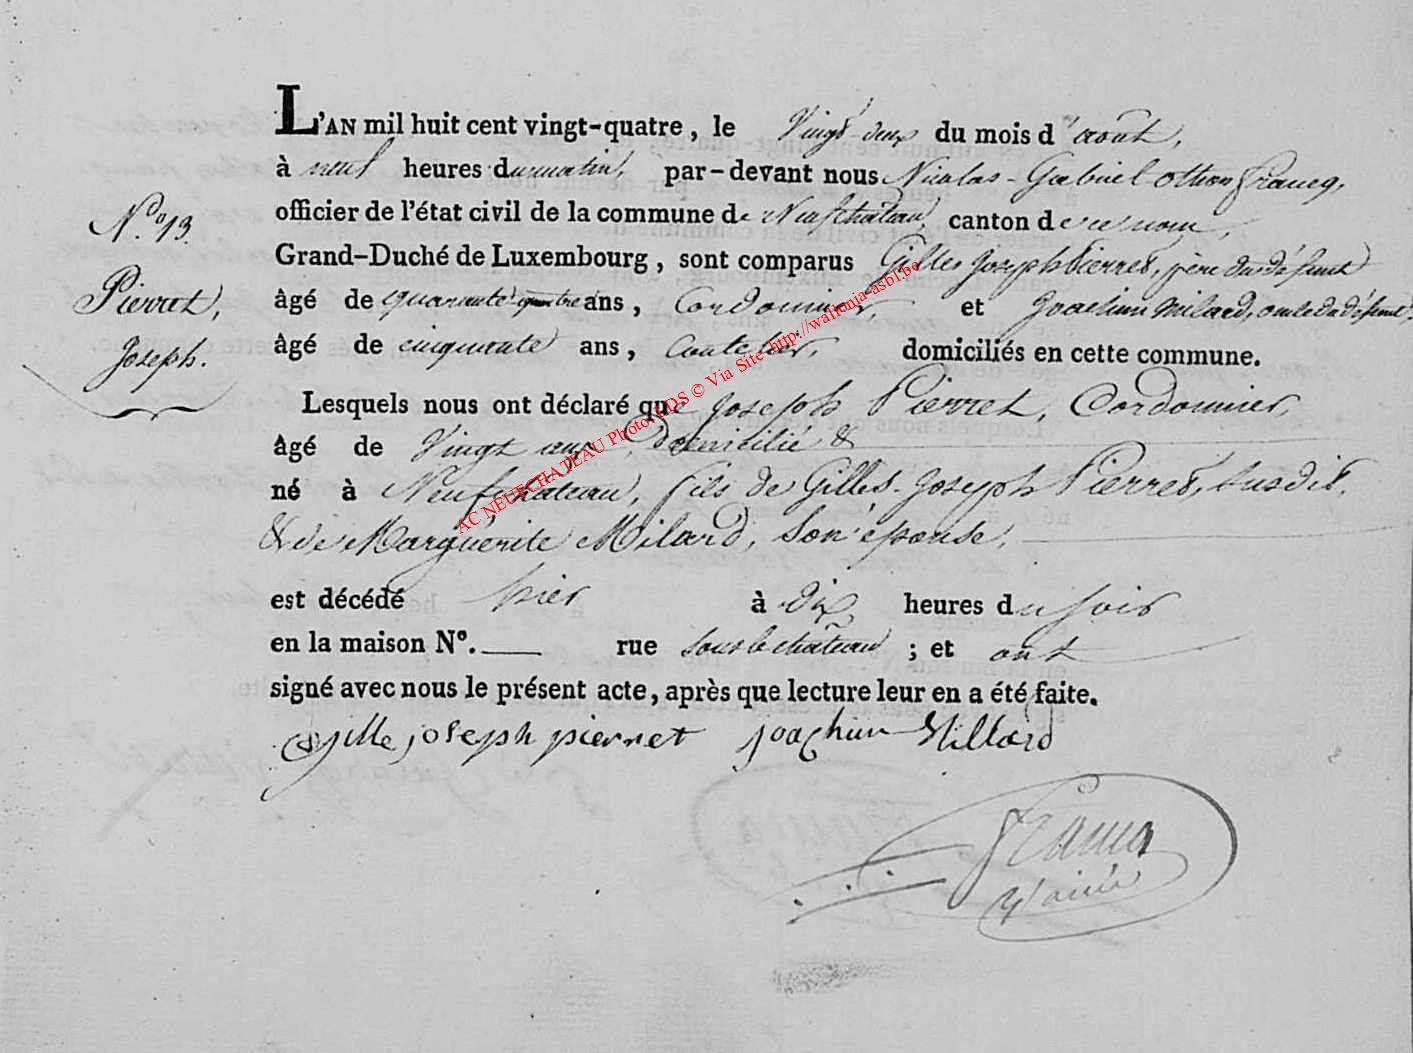 L'AN mil huit cent vingt-quatre, le Vingt deux du mois d'août,
à neuf heures du matin, par-devant nous Nicolas-Gabriel-Othon Francq,
officier de l'état civil de la commune de Neufchateau, canton de ce nom,
Grand-Duché de Luxembourg, sont comparus Gilles Joseph Pierret, père du défunt
âgé de quarante quatre ans, Cordonnier, et Joachim Milard, oncle du défunt,
âgé de cinquante ans, Coutelier, domiciliés en cette commune.
N.º 13.
Pierret,
Joseph.
Lesquels nous ont déclaré que Joseph Pierret, Cordonnier,
âgé de Vingt ans, domicilié &
né à Neufchateau, fils de Gilles-Joseph Pierret, susdit,
& de Marguérite Milard, son épouse,
est décédé hier à dix heures du soir
en la maison Nº. — rue sous le chateau ; et ont
signé avec nous le présent acte, après que lecture leur en a été faite.
Gille joseph pierret joachim Millard
Francq
l'ainé
AC NEUFCHATEAU Photo EDS © Via Site http://wallonia-asbl.be